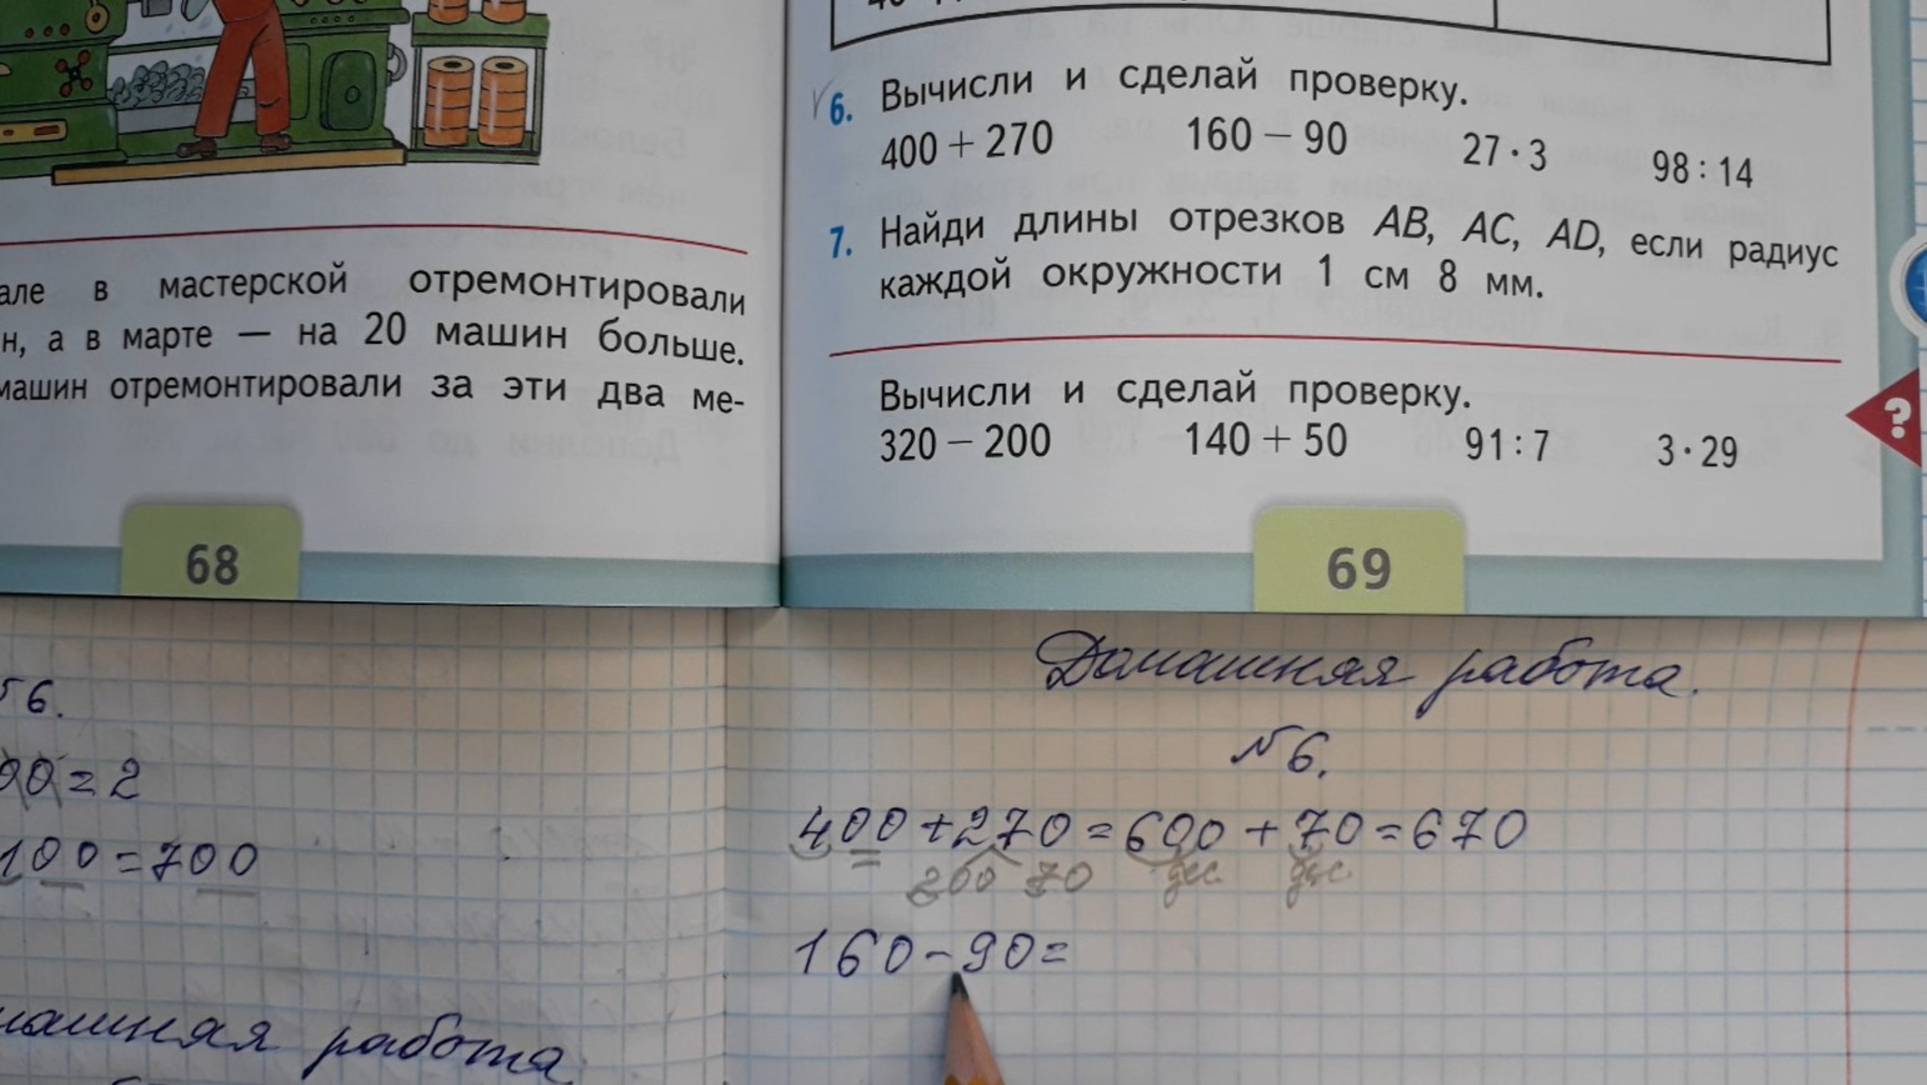 але в мастерской отремонтировали
н, а в марте — на 20 машин больше.
машин отремонтировали за эти два ме-
68
6. Вычисли и сделай проверку.
400 + 270 160 − 90 27 · 3 98 : 14
7. Найди длины отрезков AB, AC, AD, если радиус
каждой окружности 1 см 8 мм.
Вычисли и сделай проверку.
320 − 200 140 + 50 91 : 7 3 · 29
?
69
№6.
00=2
100=700
машняя работа
Домашняя работа.
№6.
400+270=600+70=670
200 70 дес. дес.
160-90=